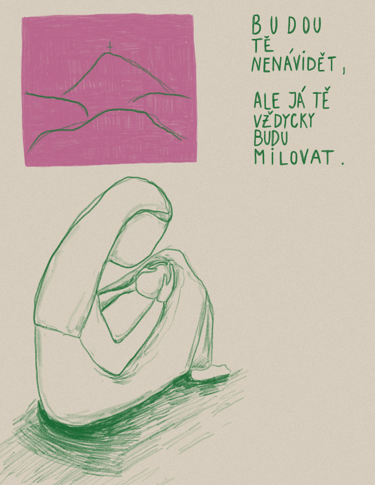 BUDOU
TĚ
NENÁVIDĚT,
ALE JÁ TĚ
VŽDYCKY
BUDU
MiLOVAT.